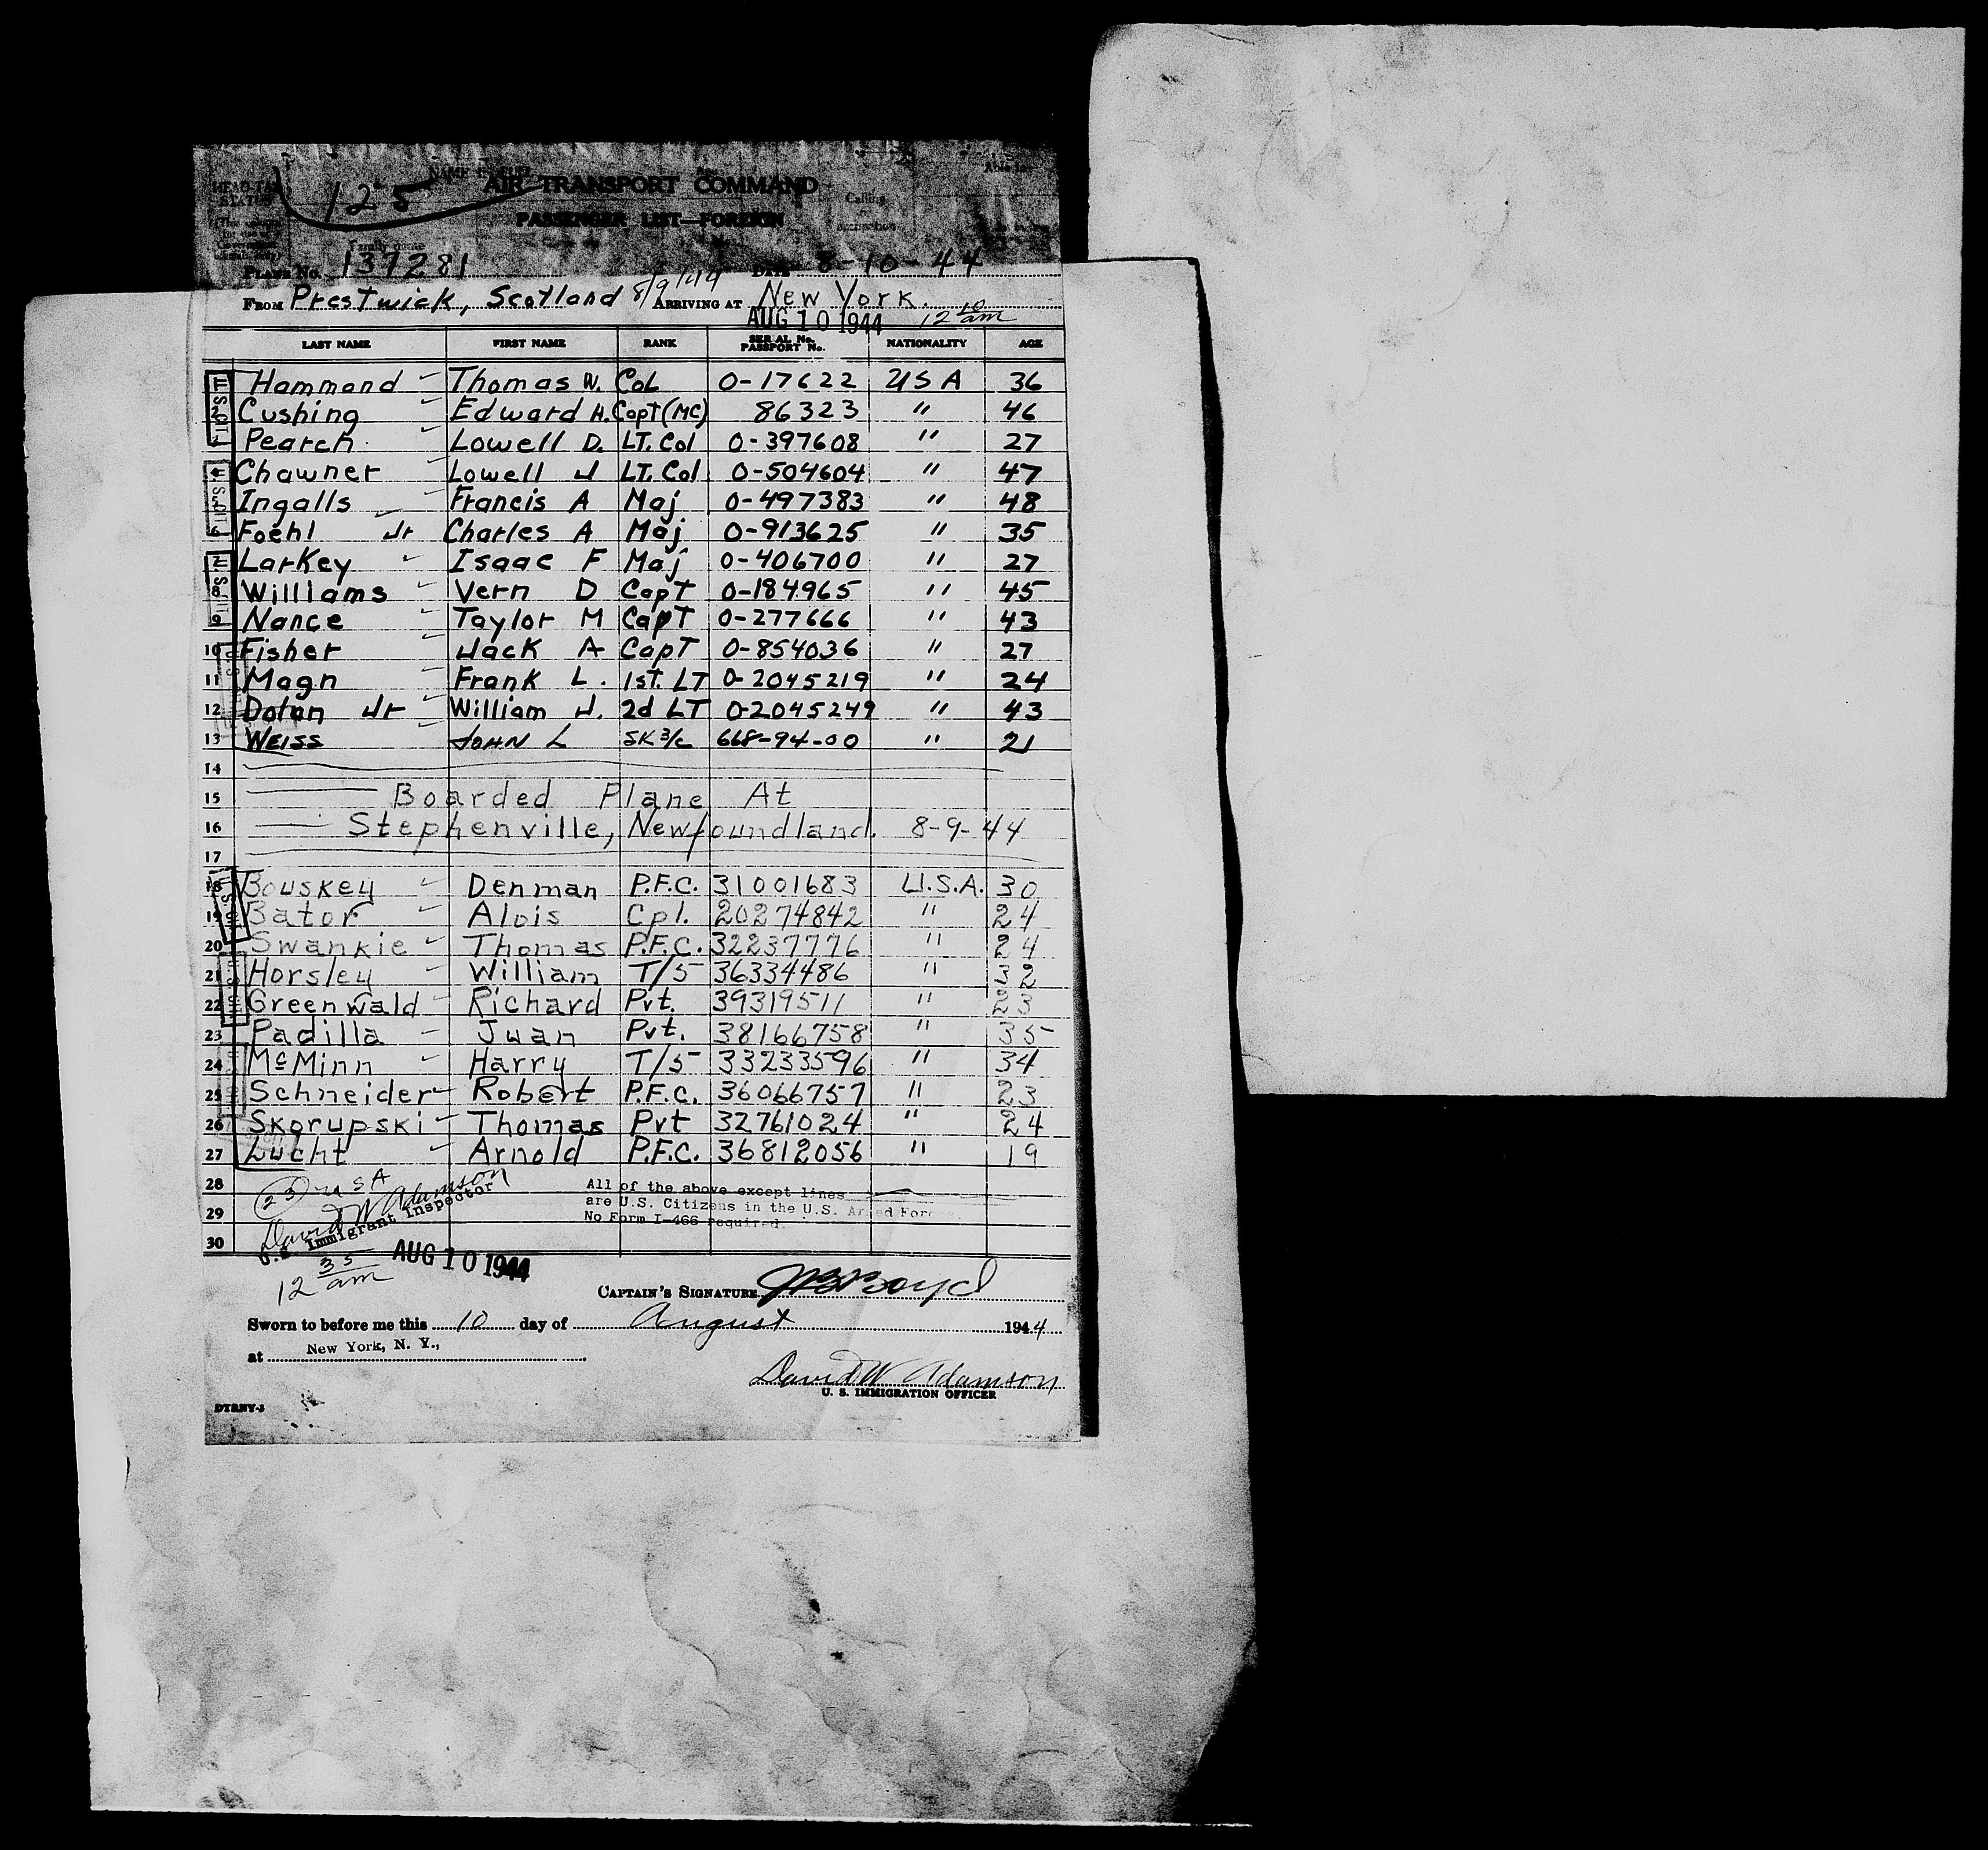 125
AIR TRANSPORT COMMAND
PASSENGER LIST—FOREIGN
HEAD-TAX STATUS
Family name
Calling
PLANE No. 137281 DATE 8-10-44
FROM Prestwick, Scotland 8/9/44 ARRIVING AT New York. 12 10 am
AUG 10 1944
LAST NAME FIRST NAME RANK SERIAL No. PASSPORT No. NATIONALITY AGE
Hammond Thomas W. Col 0-17622 USA 36
Cushing Edward H. Capt (MC) 86323 " 46
Pearch Lowell D. LT. Col 0-397608 " 27
Chawner Lowell J LT. Col 0-504604 " 47
Ingalls Francis A Maj 0-497383 " 48
Foehl Jr Charles A Maj 0-913625 " 35
Larkey Isaac F Maj 0-406700 " 27
8 Williams Vern D Capt 0-184965 " 45
9 Nance Taylor M Capt 0-277666 " 43
10 Fisher Jack A Capt 0-854036 " 27
11 Magn Frank L. 1st. LT 0-2045219 " 24
12 Dolan Jr William J. 2d LT 0-2045249 " 43
13 WEISS JOHN L SK 3/c 668-94-00 " 21
14
15 Boarded Plane At
16 Stephenville, Newfoundland. 8-9-44
17
18 Bouskey Denman P.F.C. 31001683 U.S.A. 30
19 Bator Alois Cpl. 20274842 " 24
20 Swankie Thomas P.F.C. 32237776 " 24
21 Horsley William T/5 36334486 " 32
22 Greenwald Richard Pvt. 39319511 " 23
23 Padilla Juan Pvt. 38166758 " 35
24 McMinn Harry T/5 33233596 " 34
25 Schneider Robert P.F.C. 36066757 " 23
26 Skorupski Thomas Pvt 32761024 " 24
27 Lucht Arnold P.F.C. 36812056 " 19
28 (23) USA All of the above except lines
29 David W Adamson are U.S. Citizens in the U.S. Armed Forces.
U.S. Immigrant Inspector No Form I-466 required.
30
12 35 am AUG 10 1944
CAPTAIN'S SIGNATURE JB Boyd
Sworn to before me this 10 day of August 1944
at New York, N. Y.,
David W Adamson
U. S. IMMIGRATION OFFICER
DTRNY-3